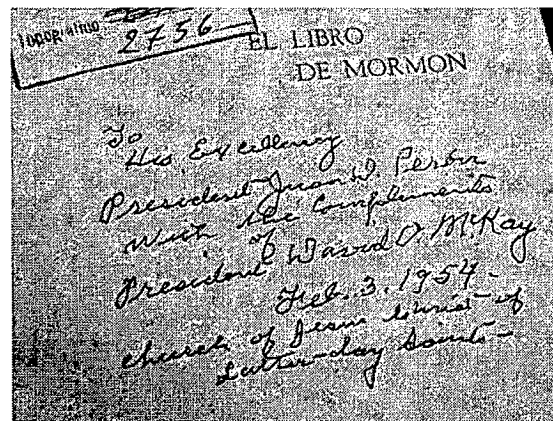 2736
EL LIBRO
DE MORMON
To
His Excellency
President Juan D. Perón
With the Compliments
of
President David O. McKay
Feb. 3, 1954-
Church of Jesus Christ of
Latter-day Saints-